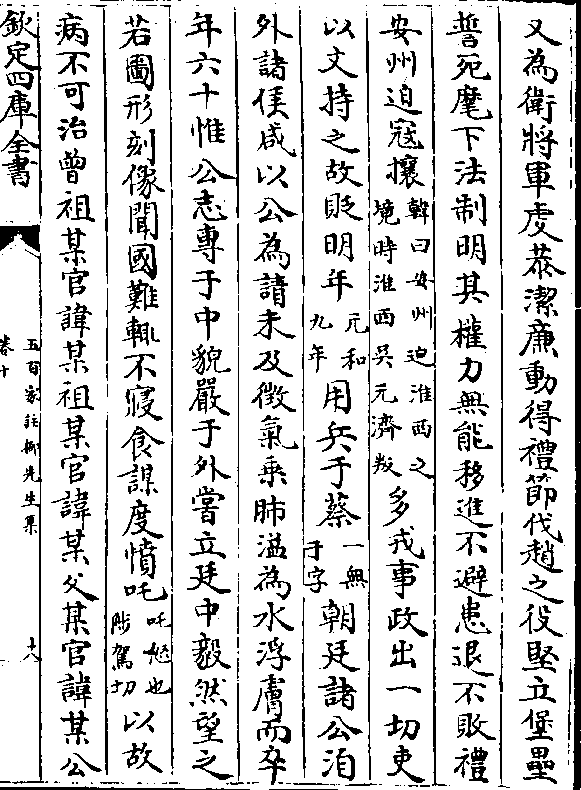 又為衛將軍虔恭潔廉動得禮節伐趙之役堅立堡壘
誓死麾下法制明具權力無能移進不避患退不敗禮
安州迫寇攘韓曰安州迫淮西之境時淮西吳元濟叛多戎事政出一切吏
以文持之故貶明年元和九年用兵于蔡一無于字朝廷諸公洎
外諸侯咸以公為請未及徵氣乗肺溢為水浮膚而卒
年六十惟公志專于中貌嚴于外嘗立廷中毅然望之
若圖形刻像聞國難輒不寢食謀度憤吒吒怒也陟駕切以故
病不可治曾祖某官諱某祖某官諱某父某官諱某公
欽定四庫全書
五百家註柳先生集
卷十
十八